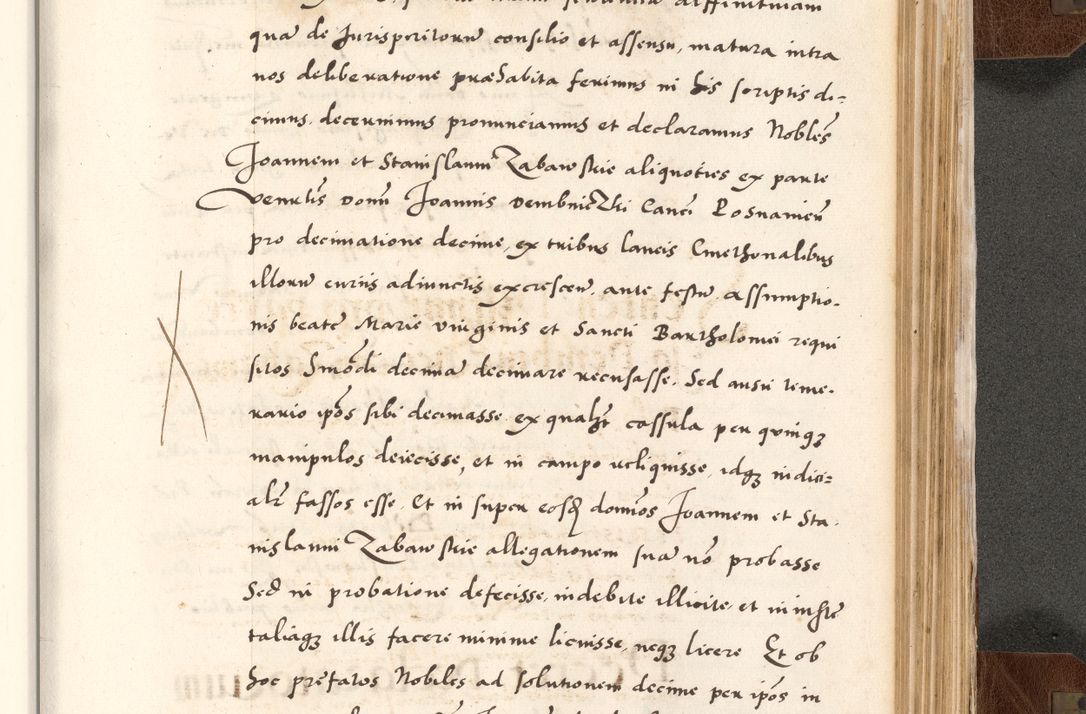 qua de Jurisperitorum consilio et assensu, matura intra
nos deliberatione praehabita ferimus in his scriptis di-
cimus, decernimus pronunciamus et declaramus Nobles
Joannem et Stanislaum Zabawskie aliquoties ex parte
Venrlis Domi Joannis Dembniczki Canci Posnanien
pro decimatione decime, ex tribus laneis Cmethonalibus
illorum curiis adiunctis excrescen, ante festum assumptio-
nis beate Marie virginis et Sancti Bartholomei requi
sitos Smodi decima decimare recusasse. Sed ausu teme-
rario ipos sibi decimasse ex qualibet cassula per quinqz
manipulos deiecisse, et in campo reliquisse, idqz iudici-
alr fassos esse. Et in super eosd dominos Joannem et Sta-
nislaum Zabawskie allegationem sua no probasse
Sed in probatione defecisse, indebite illicite et iniuste
taliaqz illis facere minime licuisse, neqz licere Et ob
hoc prefatos Nobiles ad solutionem decime per ipos in